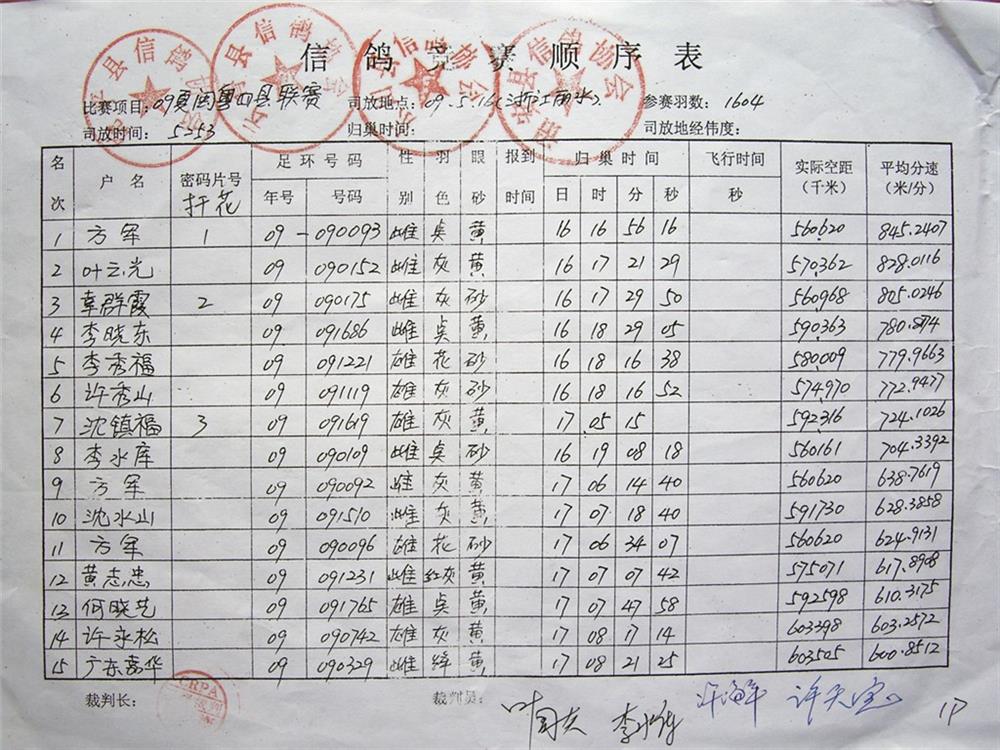 信鸽竞赛顺序表
比赛项目: 09夏闽粤四县联赛 司放地点: 09.5.16(浙江丽水) 参赛羽数: 1604
司放时间: 5253 归巢时间: 司放地经纬度:
名次 户名 密码片号 扦花 足环号码 性别 羽色 眼砂 报到时间 归巢时间 飞行时间 实际空距(千米) 平均分速(米/分)
年号 号码 日 时 分 秒 秒
1 方军 1 09 - 090093 雌 黄 16 16 56 16 560.620 845.2407
2 叶云光 09 090152 雌 灰 黄 16 17 21 29 570.362 828.0116
3 韦群霞 2 09 090175 雌 灰 砂 16 17 29 50 560.968 805.0246
4 李晓东 09 091686 雌 黄 16 18 29 05 590.363 780.874
5 李秀福 09 091221 雄 花 砂 16 18 16 38 580.009 779.9663
6 许秀山 09 091119 雄 灰 砂 16 18 16 52 574.970 772.9477
7 沈镇福 3 09 091619 雄 灰 黄 17 05 15 592316 724.1026
8 李水库 09 090109 雌 砂 16 19 08 18 560161 704.3392
9 方军 09 090092 雌 灰 黄 17 06 14 40 560620 638.7619
10 沈水山 09 091510 雌 灰 黄 17 07 18 40 591730 628.3858
11 方军 09 090096 雄 花 砂 17 06 34 07 560620 624.9131
12 黄志忠 09 091231 雌 红灰 黄 17 07 07 42 575071 617.8908
13 何晓艺 09 091765 雄 黄 17 07 47 58 592598 610.3175
14 许永松 09 090742 雄 灰 黄 17 08 17 14 603298 603.2572
15 广东嘉华 09 090329 雌 绛 黄 17 08 21 25 603505 600.8512
裁判长: 裁判员: